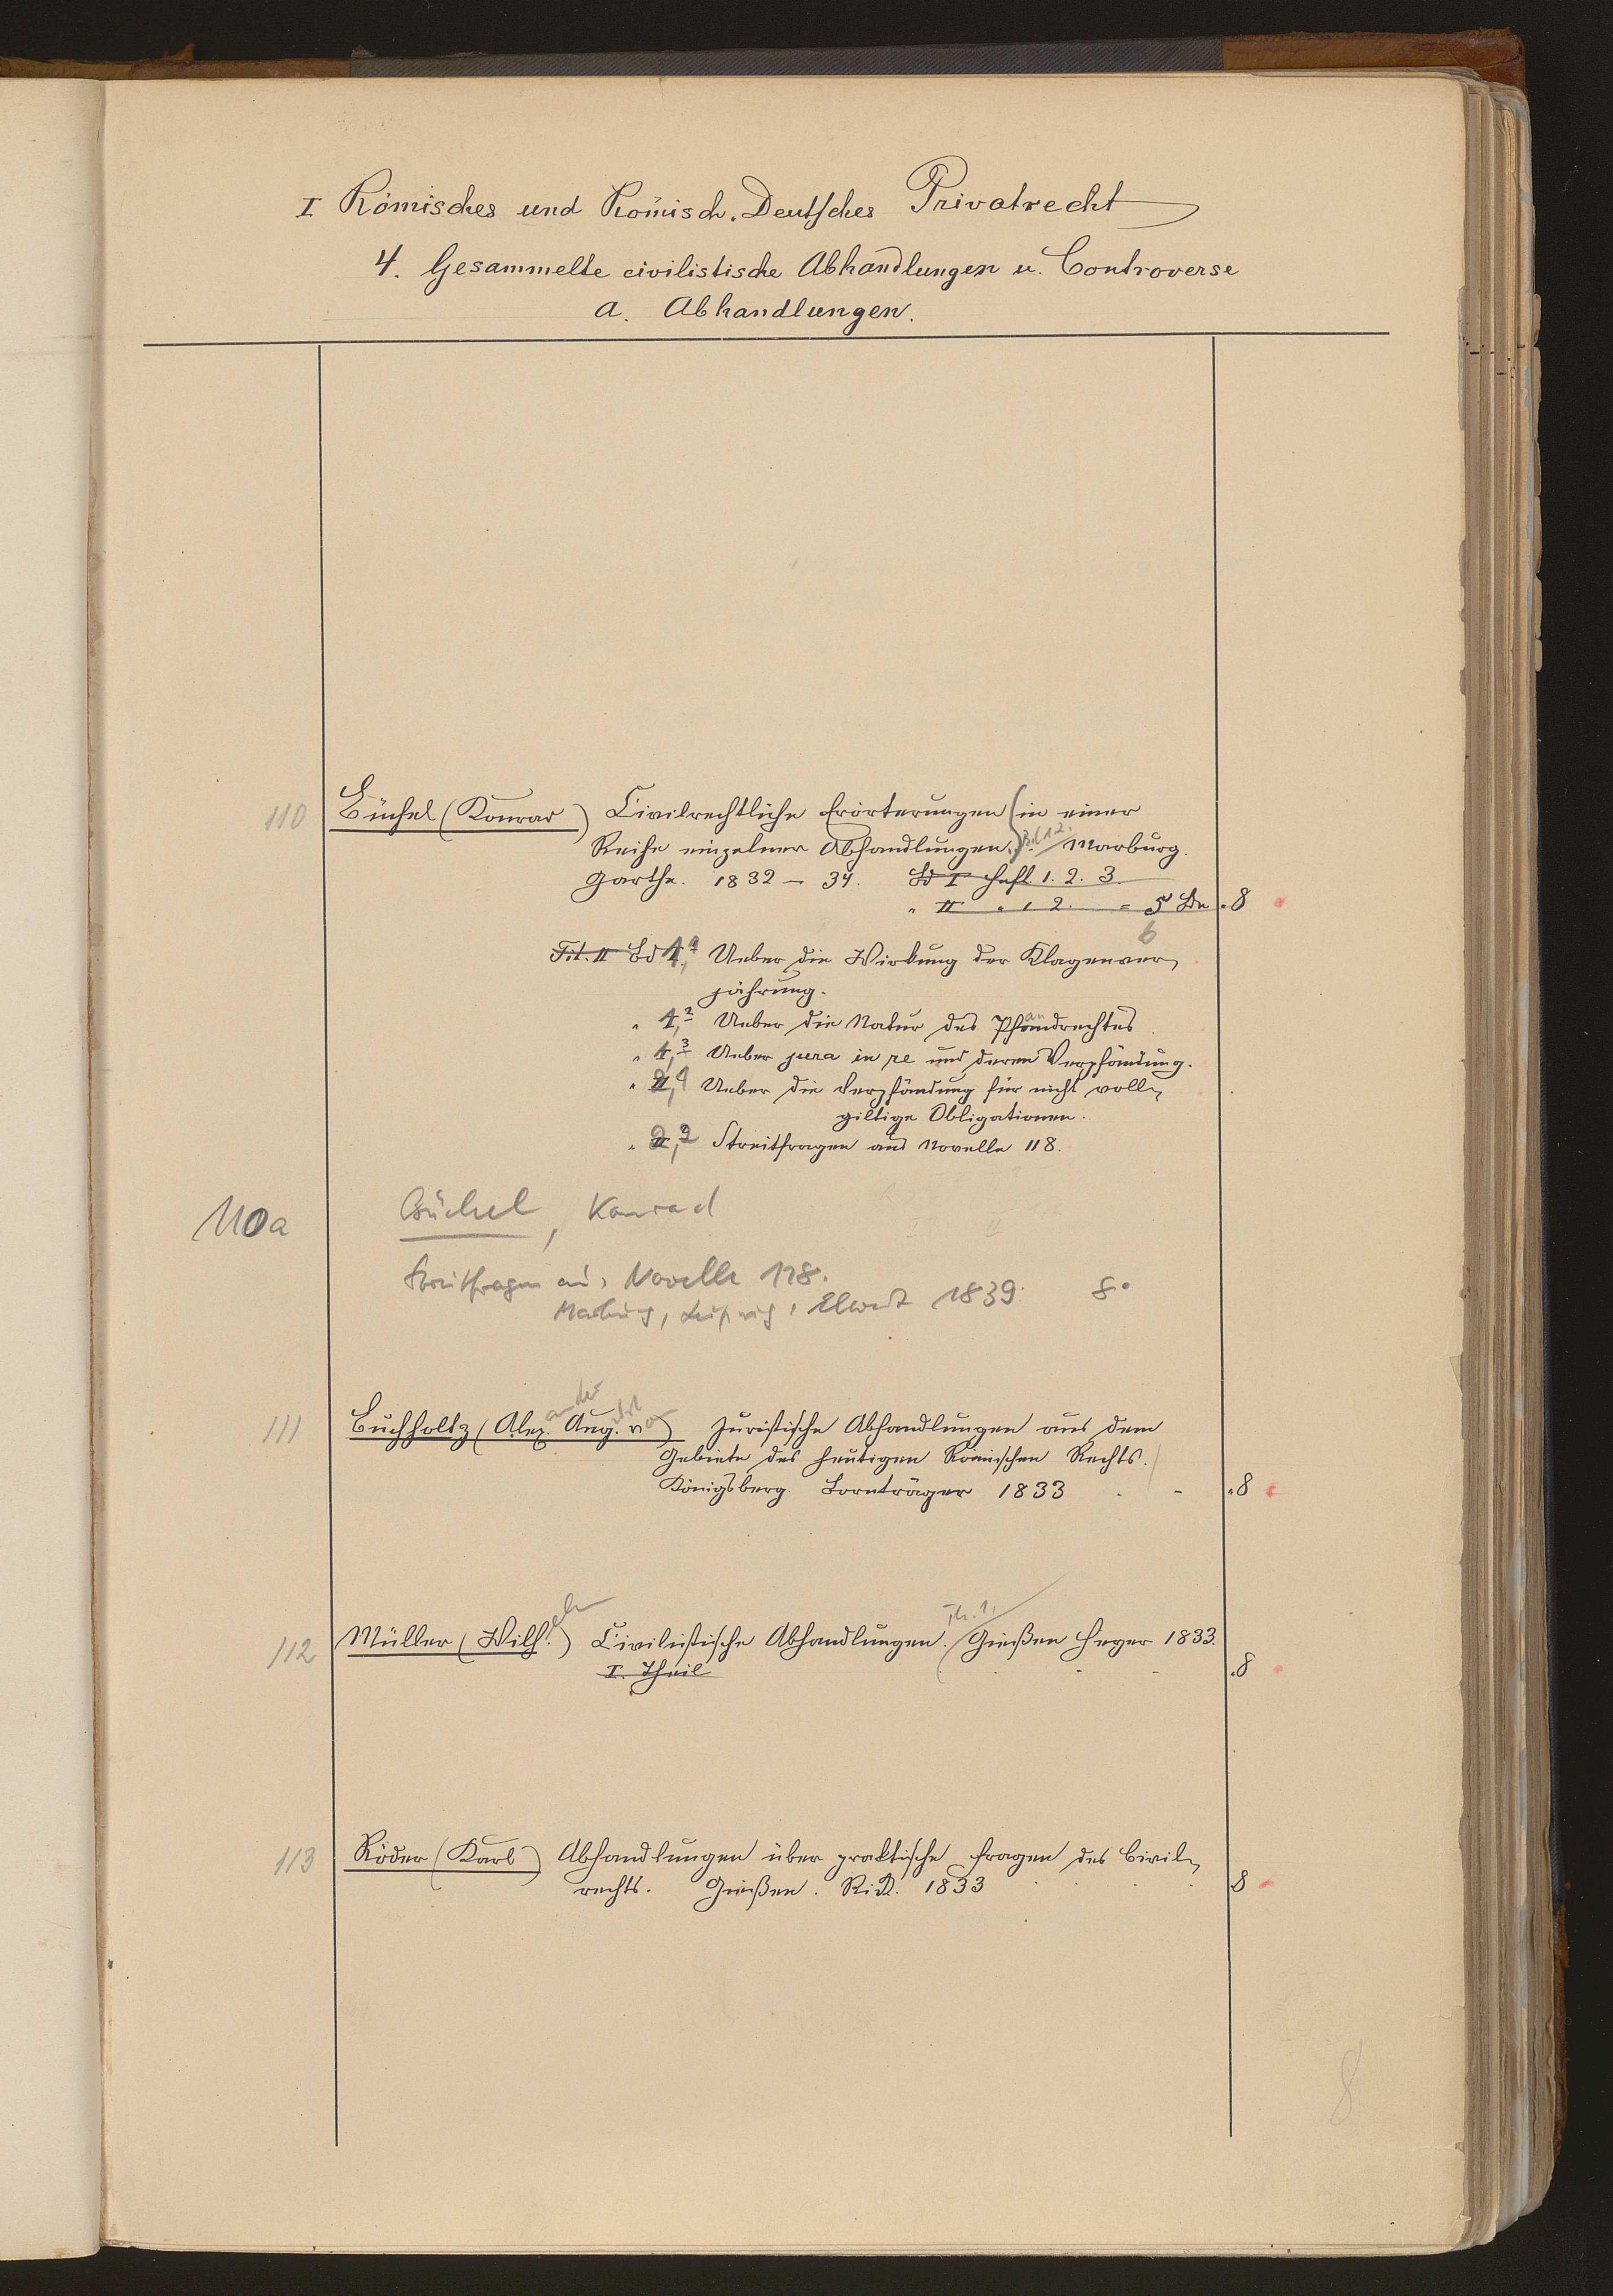 I Römisches und Römisch-Deutsches Privatrecht
4. Gesammelte civilistische Abhandlungen u. Controverse
a. Abhandlungen.
110 Büchel (Konrad) Civilrechtliche Erörterungen (in einer
Reihe einzelner Abhandlungen.) Bd 1.2. Marburg.
Garthe. 1832 – 34. Bd I Heft. 1. 2. 3.
" II " 1 2. = 5 Bde .8
6
Tit. II Bd 1,1 Ueber die Wirkung der Klagenver-
jährung.
" 1,2 Ueber die Natur des Pfandrechtes
" 1,3 Ueber jura in re und deren Verpfändung.
" 2,1 Ueber die Verpfändung für nicht voll-
giltige Obligationen.
" 2,2 Streitfragen aus Novelle 118.
110a Büchel, Konrad
Streitfragen aus Novelle 118.
Marburg, Leipzig, Elwert 1839. 8°
ander ust von
111 Buchholtz (Alex. Aug. v) Juristische Abhandlungen aus dem
Gebiete des heutigen Römischen Rechts.
Königsberg. Bornträger 1833 - - .8
elm Th. 1.
112 Müller (Wilh.) Civilistische Abhandlungen. Gießen Heyer 1833.
I. Theil .8
113 Röder (Karl) Abhandlungen über praktische Fragen des Civil-
rechts. Gießen. Rick. 1833 8
8